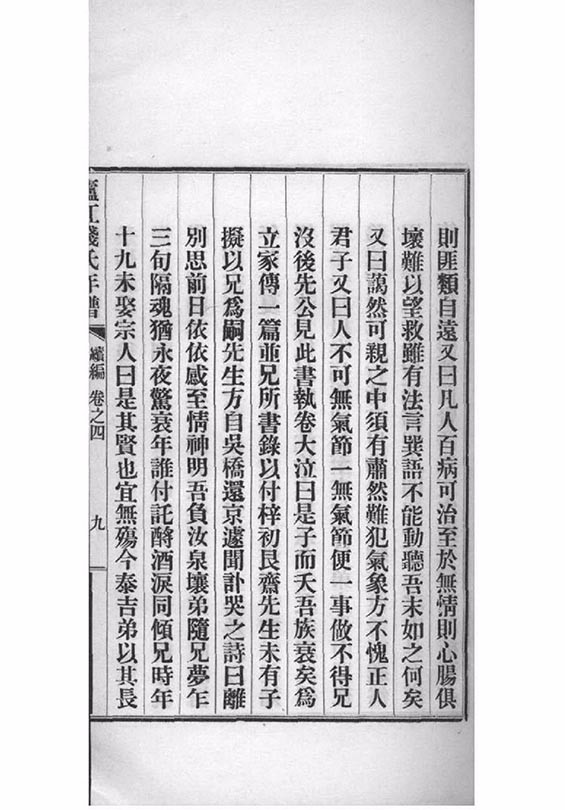 則匪類自遠又曰凡人百病可治至於無情則心腸俱
壞難以望救雖有法言巽語不能動聽吾末如之何矣
又曰藹然可親之中須有肅然難犯氣象方不愧正人
君子又曰人不可無氣節一無氣節便一事做不得兄
沒後先公見此書執卷大泣曰是子而夭吾族衰矣爲
立家傳一篇並兄所書錄以付梓初艮齋先生未有子
擬以兄爲嗣先生方自吳橋還京遽聞訃哭之詩曰離
別思前日依依感至情神明吾負汝泉壤弟隨兄夢乍
三句隔魂猶永夜驚衰年誰付託酹酒淚同傾兄時年
十九未娶宗人曰是其賢也宜無殤今泰吉弟以其長
廬江錢氏年譜
續編
卷之四
九